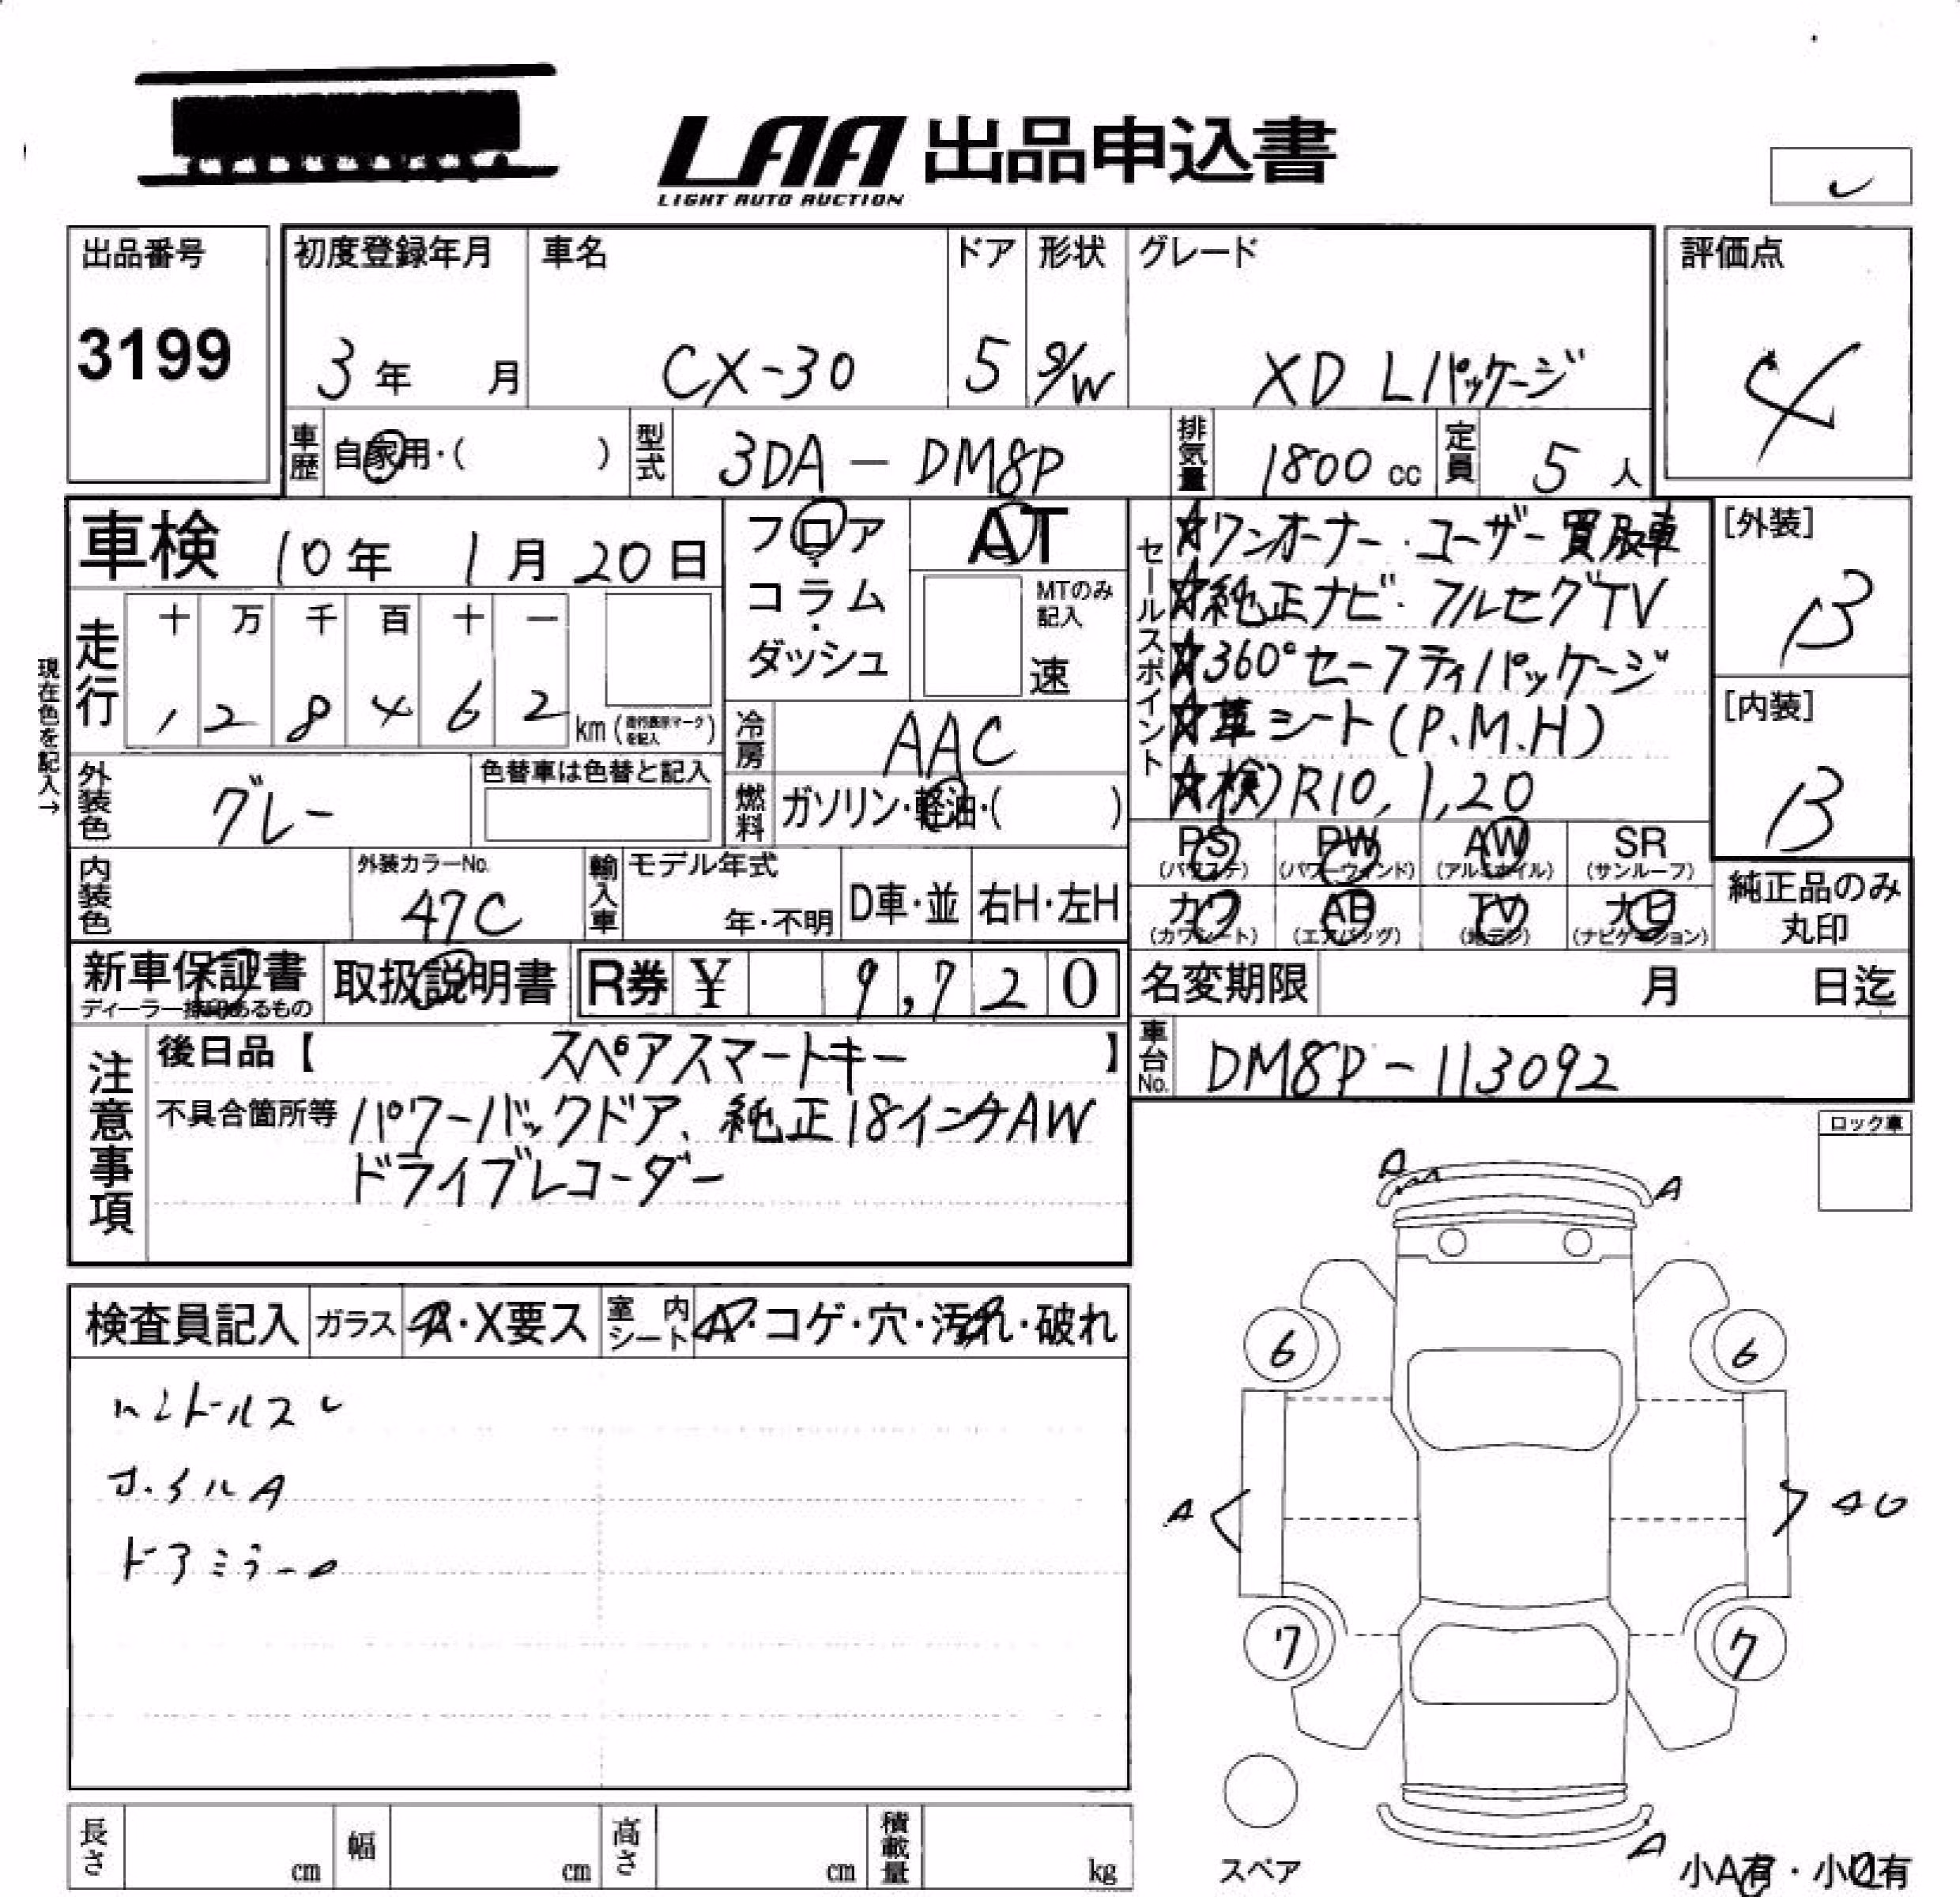 LAA 出品申込書
LIGHT AUTO AUCTION
出品番号
3199
初度登録年月
3年 月
車名
CX-30
ドア
5
形状
S/W
グレード
XD Lパッケージ
評価点
4
車歴 自家用・( )
型式 3DA - DM8P
排気量 1800 cc
定員 5 人
車検 10年 1月 20日
フロア
・
コラム
・
ダッシュ
AT
MTのみ
記入
速
セールスポイント
☆ワンオーナー・ユーザー買取車
☆純正ナビ・フルセグTV
☆360°セーフティパッケージ
☆革シート(P.M.H)
☆検)R10,1,20
[外装]
B
[内装]
B
現在色を記入→
走行
十 万 千 百 十 一
2 8 4 6 2
km (走行表示マークを記入)
冷房 AAC
外装色 グレー
色替車は色替と記入
燃料 ガソリン・軽油・( )
内装色
外装カラーNo.
47C
輸入車
モデル年式
年・不明
D車・並
右H・左H
PS (パワステ)
PW (パワーウィンド)
AW (アルミホイル)
SR (サンルーフ)
カワ (カワシート)
AB (エアバッグ)
TV (地デジ)
ナビ (ナビゲーション)
純正品のみ
丸印
新車保証書
ディーラー捺印あるもの
取扱説明書
R券 ¥ 9,720
名変期限 月 日迄
車台No. DM8P-113092
注意事項
後日品【 スペアスマートキー 】
不具合箇所等 パワーバックドア、純正18インチAW
ドライブレコーダー
ロック車
A
A
検査員記入
ガラス
A・X要ス
室内シート
A・コゲ・穴・汚れ・破れ
ハンドルスレ
ホイルA
ドアミラー
6
6
A
7
7
スペア
A
小A有・小U有
長さ cm
幅 cm
高さ cm
積載量 kg